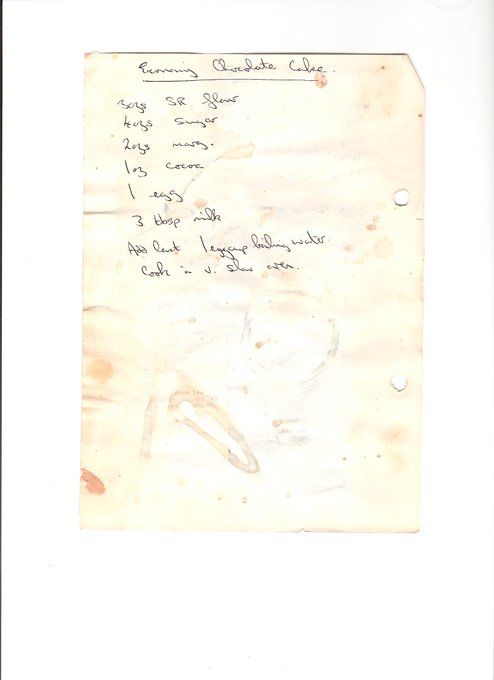 Economy Chocolate Cake.
3ozs SR flour
4ozs sugar
2ozs marg.
1oz cocoa
1 egg
3 tbsp milk
Add last 1 eggcup boiling water.
Cook in v. slow oven.